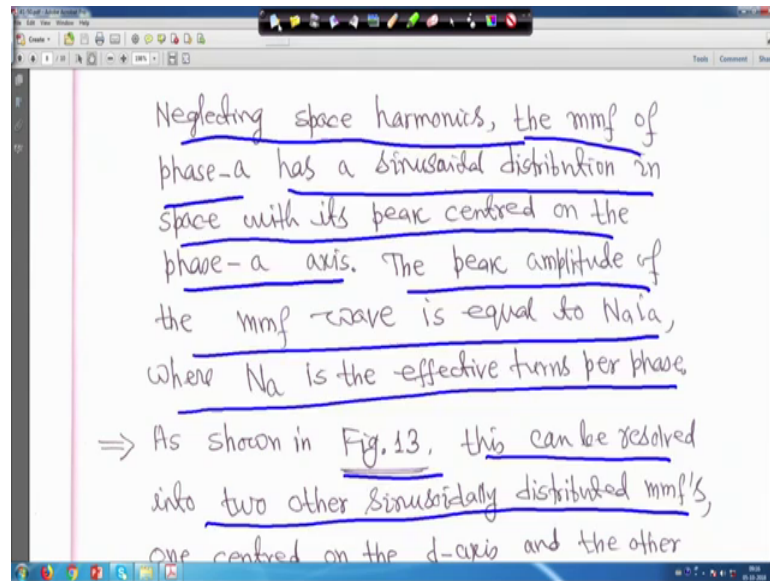 File Edit View Window Help
Create
Tools Comment
Neglecting space harmonics, the mmf of
phase-a has a sinusoidal distribution in
space with its peak centred on the
phase-a axis. The peak amplitude of
the mmf wave is equal to Naia,
where Na is the effective turns per phase.
⇒ As shown in Fig. 13, this can be resolved
into two other sinusoidally distributed mmf's,
one centred on the d-axis and the other